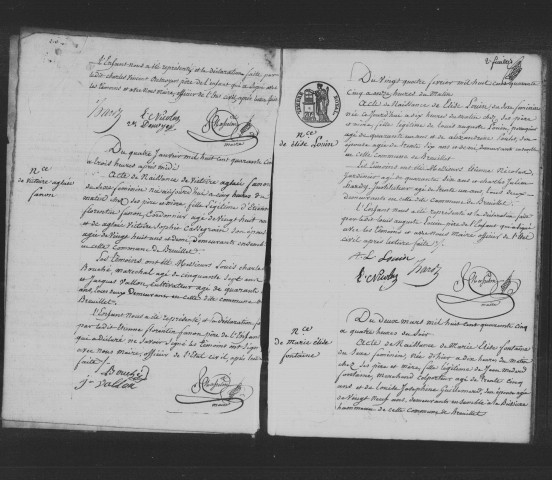 L'Enfant nous a été représenté et la déclaration faite, par
ledit Charles Vincent père de l'enfant qui a signé avec
les témoins et avec nous Maire, officier de l'Etat civil, après lecture faite
Hardy E Nicolas
maire
Nce
de Victoire aglaée
fanon
Du quatre Janvier mil huit cent quarante Cinq
à trois heures après midi
Acte de Naissance de Victoire aglaée fanon
du sexe féminin née aujourd'hui à cinq heures du
matin des père et mère, fille légitime d'Etienne
florentin fanon, Cordonnier agé de Vingt huit ans
et de aglaée Victoire Sophie son épouse
agée de Vingt huit ans demeurants ensemble
en cette commune de Breuillet
Les témoins ont été Messieurs Louis Charles
Bouché, marechal agé de cinquante sept ans
et Jacques Vallon, Cultivateur agé de quarante
ans, tous deux demeurants en cette commune de
Breuillet
L'Enfant nous a été représenté, et la déclaration faite
par ledit Etienne florentin fanon, père de l'Enfant
qui a déclaré ne savoir signer les témoins ont signé
avec nous maire, officier de l'Etat civil, après lecture
faite
Bouché
j- vallon
maire
2e feuillet
Nce
de élise Louin
Du Vingt quatre février mil huit cent quarante
Cinq à heures du Matin
Acte de Naissance de Elise Louin, du sexe féminin
née à six heures du matin des père
et mère, fille légitime de Louis auguste Louin,
agé de quarante et un ans et de alexandrine son
épouse agée de trente six ans demeurants ensemble
en cette Commune de Breuillet
Les témoins ont été Messieurs Etienne Nicolas
Jardinier agé de quarante ans et
Hardy, Instituteur agé de trente ans, tous
deux demeurants en cette commune de Breuillet
L'enfant nous a été représenté et la déclaration faite
par ledit Louis auguste Louin père de l'Enfant qui a signé
avec les témoins et avec nous Maire officier de l'Etat
civil, après lecture faite
A L Louin
E Nicolas Hardy
maire
Nce
De marie élise
fontaine
Du Deux mars mil huit cent quarante cinq
à quatre heures du soir
Acte de Naissance de Marie Elise fontaine
du sexe féminin, née d'hier à dix heures du matin
des père et mère, fille légitime de Jean
fontaine, Marchand Colporteur agé de trente cinq
ans et de Louise Josephine son épouse agée
de Vingt neuf ans, demeurants ensemble à la Badaire
commune de cette commune de Breuillet